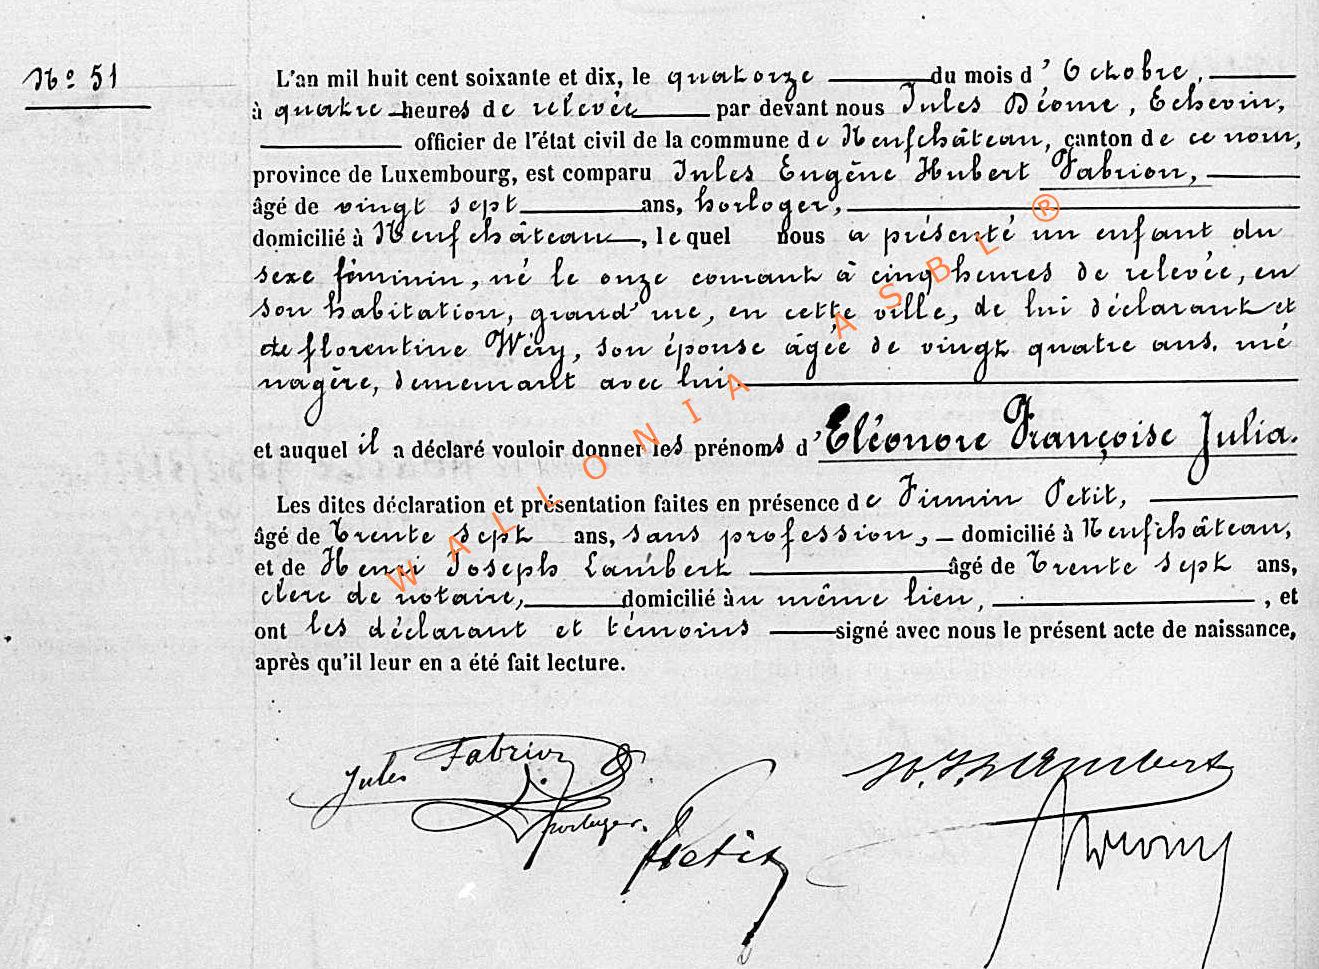 N° 51
L'an mil huit cent soixante et dix, le quatorze du mois d'Octobre,
à quatre heures de relevée par devant nous Jules Déome, Echevin,
officier de l'état civil de la commune de Neufchâteau, canton de ce nom,
province de Luxembourg, est comparu Jules Eugène Hubert Fabrion,
âgé de vingt sept ans, horloger,
domicilié à Neufchâteau, lequel nous a présenté un enfant du
sexe féminin, né le onze courant à cinq heures de relevée, en
son habitation, grand'rue, en cette ville, de lui déclarant et
de florentine Wéry, son épouse âgée de vingt quatre ans, mé
nagère, demeurant avec lui.
et auquel il a déclaré vouloir donner les prénoms d'Eléonore Françoise Julia.
Les dites déclaration et présentation faites en présence de Firmin Petit,
âgé de Trente sept ans, sans profession, domicilié à Neufchâteau,
et de Henri Joseph Lambert âgé de Trente sept ans,
clerc de notaire, domicilié au même lieu, , et
ont les déclarant et témoins signé avec nous le présent acte de naissance,
après qu'il leur en a été fait lecture.
WALLONIA ASBL ®
Jules Fabrion
horloger.
H. J. Lambert
Petit